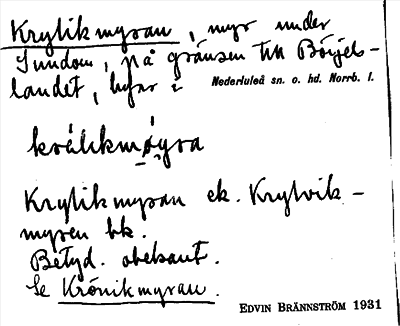 Krylikmyran, myr under
Sundom, på gränsen till Börjels-
landet, byar i Nederluleå sn. o. hd. Norrb. l.
králikmøyra
Krylikmyran ek. Krylvik-
myren bk.
Betyd. obekant.
Se Krónikmyran.
EDVIN BRÄNNSTRÖM 1931